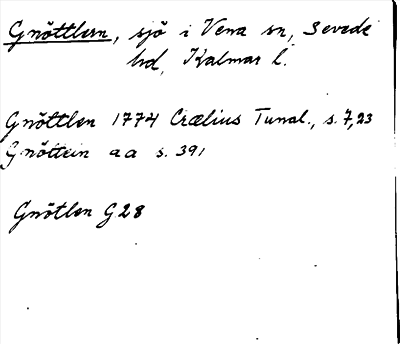 Gnöttlern, sjö i Vena sn, Sevede
hd, Kalmar l.
Gnöttlen 1774 Crælius Tunal., s. 7,23
Gnöttein a a s. 391
Gnötlen G 28